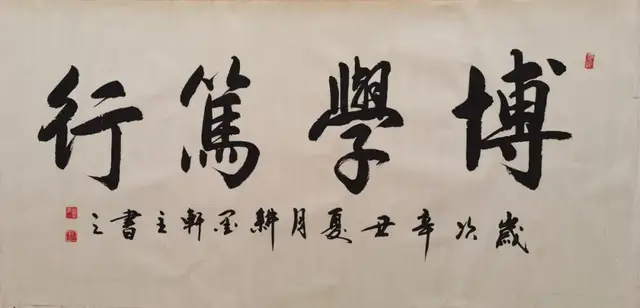 博學篤行
歲次辛丑夏月耕墨軒主書之